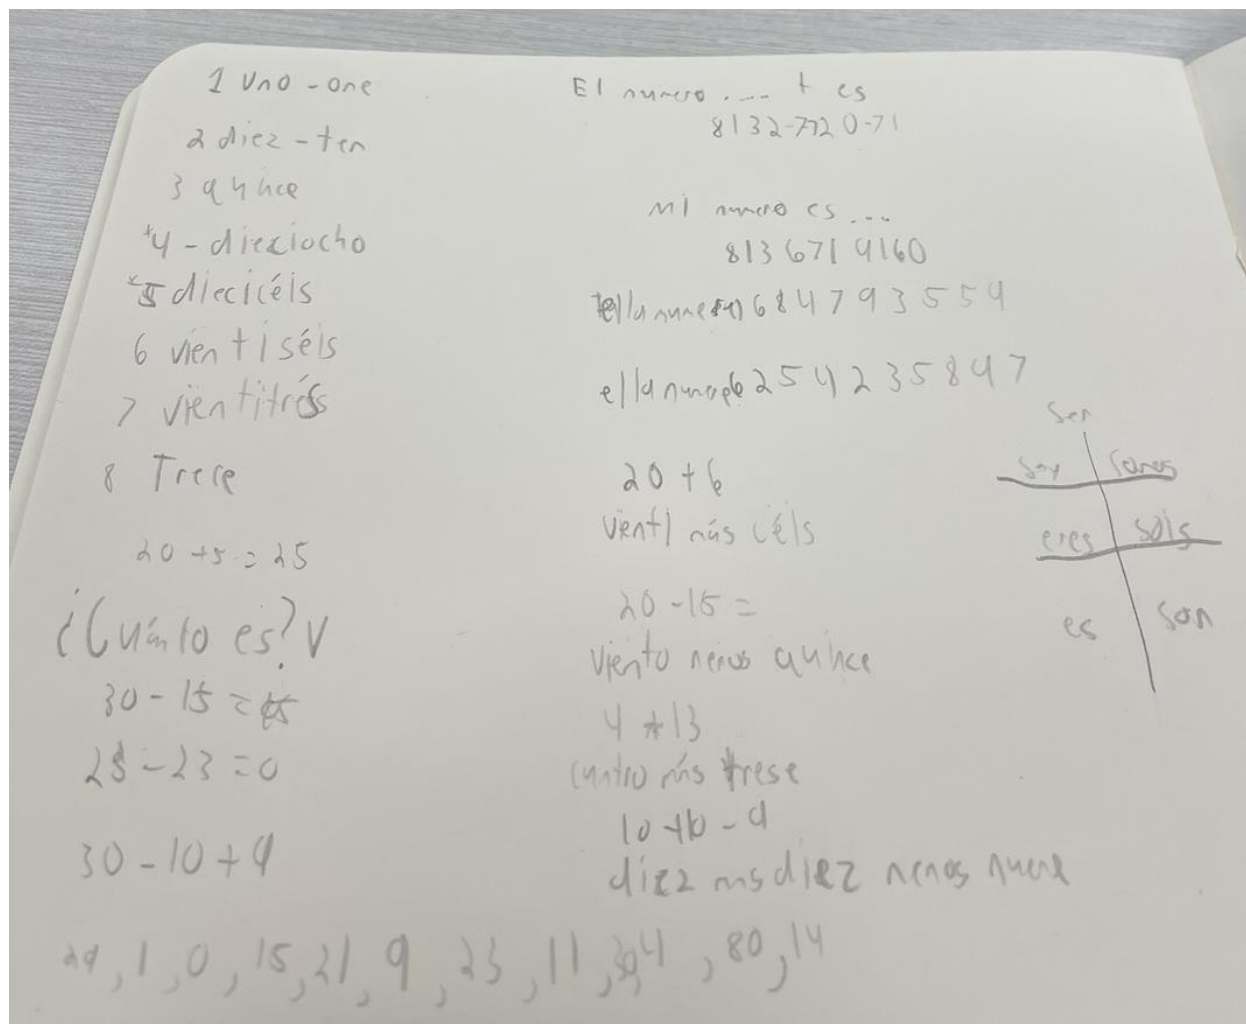 1 uno - one
2 diez - ten
3 quince
*4 - dieziocho
*5 diecicéis
6 vientiséis
7 vientitrés
8 Trece
20 + 5 = 25
¿Cuánto es?
30 - 15 =
- 23 = 0
30 - 10 + 9
29, 1, 0, 15, 21, 9, 23, 11, 30, 4, 80, 14
El numero .... es
8132-7720-71
Mi numero es ...
813 671 9160
ella 684793554
ella 254235847
20 + 6
vienti más céis
20 - 15 =
viento menos quince
4 + 13
cuatro más trese
10 + 10 - 9
diez ms diez menos nueve
Ser
soy somos
eres sois
es son